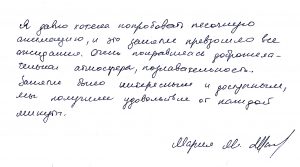 Я давно хотела попробовать песочную
анимацию, и это занятие превзошло все
ожидания. Очень понравилась доброжела-
тельная атмосфера, познавательность.
Занятие было интересным и доступным,
мы получили удовольствие от каждой
минуты.
Мария М.